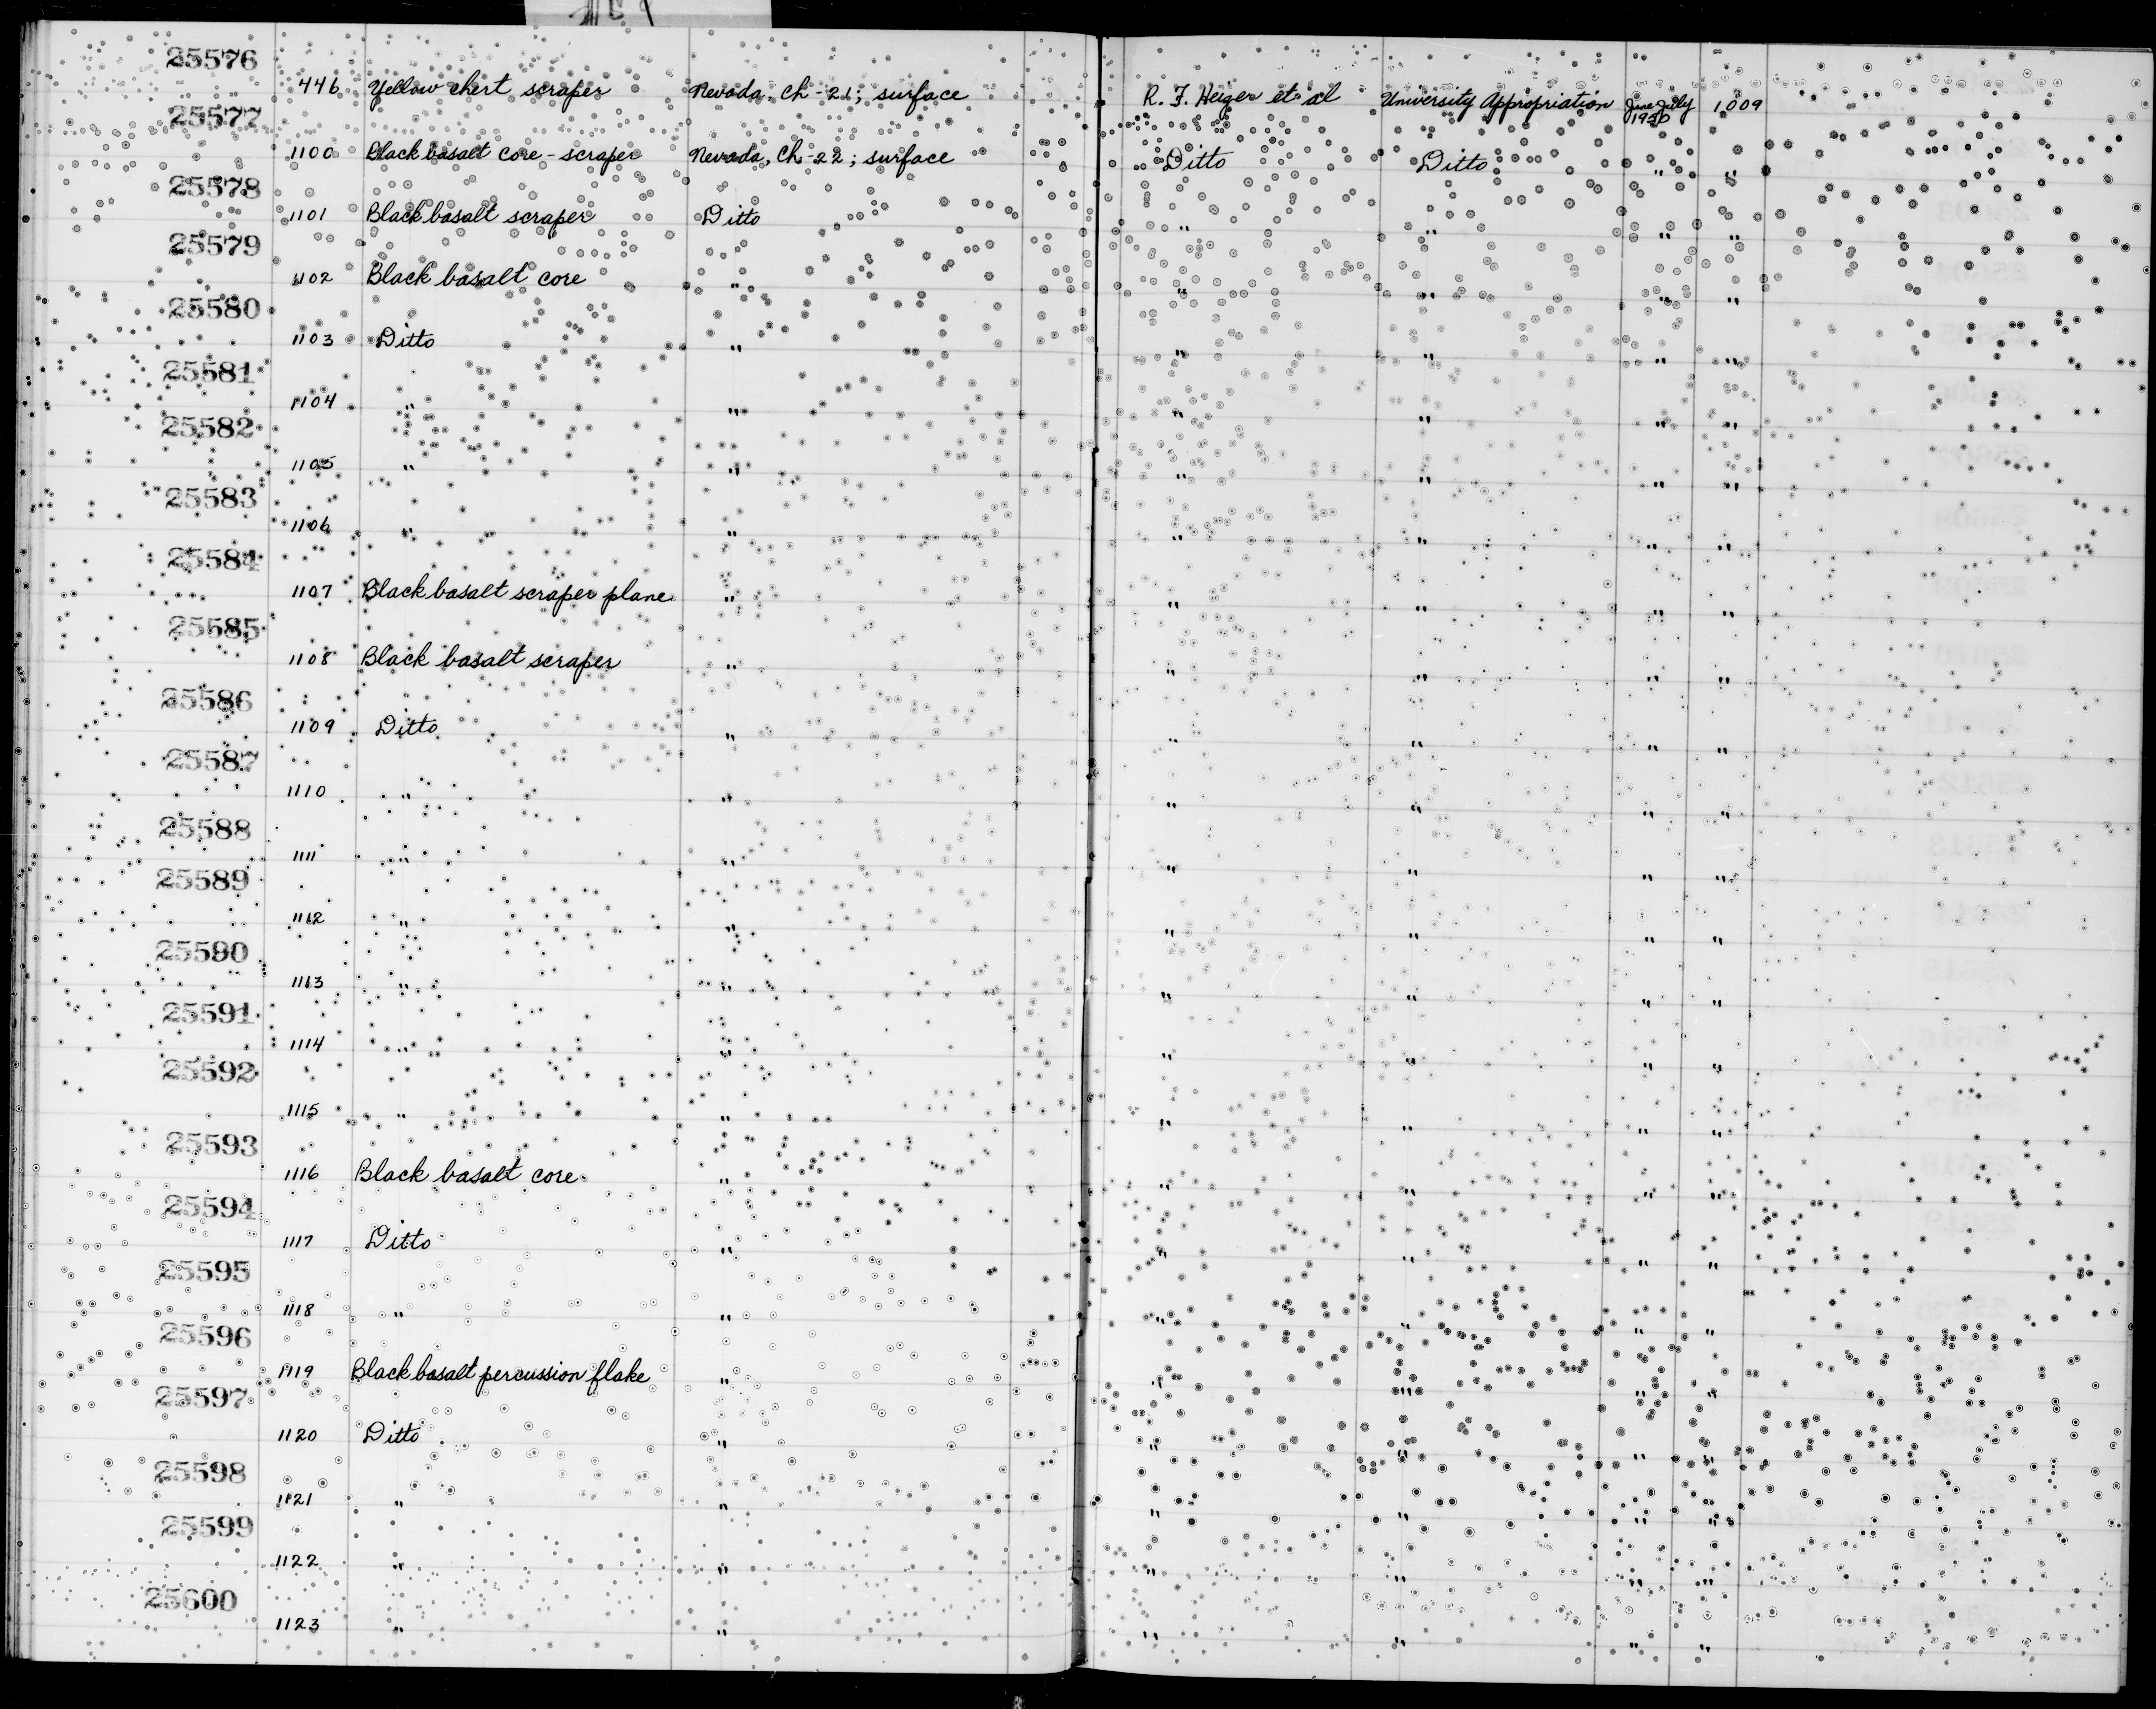 25576
446 Yellow chert scraper Nevada, Ch-21; surface R. F. Heizer et al University Appropriation June-July 1950 1009
25577
1100 Black basalt core-scraper Nevada, Ch-22; surface Ditto Ditto " "
25578
1101 Black basalt scraper Ditto " " " "
25579
1102 Black basalt core " " " " "
25580
1103 Ditto " " " " "
25581
1104 " " " " " "
25582
1105 " " " " " "
25583
1106 " " " " " "
25584
1107 Black basalt scraper plane " " " " "
25585
1108 Black basalt scraper " " " " "
25586
1109 Ditto " " " " "
25587
1110 " " " " " "
25588
1111 " " " " " "
25589
1112 " " " " " "
25590
1113 " " " " " "
25591
1114 " " " " " "
25592
1115 " " " " " "
25593
1116 Black basalt core " " " " "
25594
1117 Ditto " " " " "
25595
1118 " " " " " "
25596
1119 Black basalt percussion flake " " " " "
25597
1120 Ditto " " " " "
25598
1121 " " " " " "
25599
1122 " " " " " "
25600
1123 " " " " " "